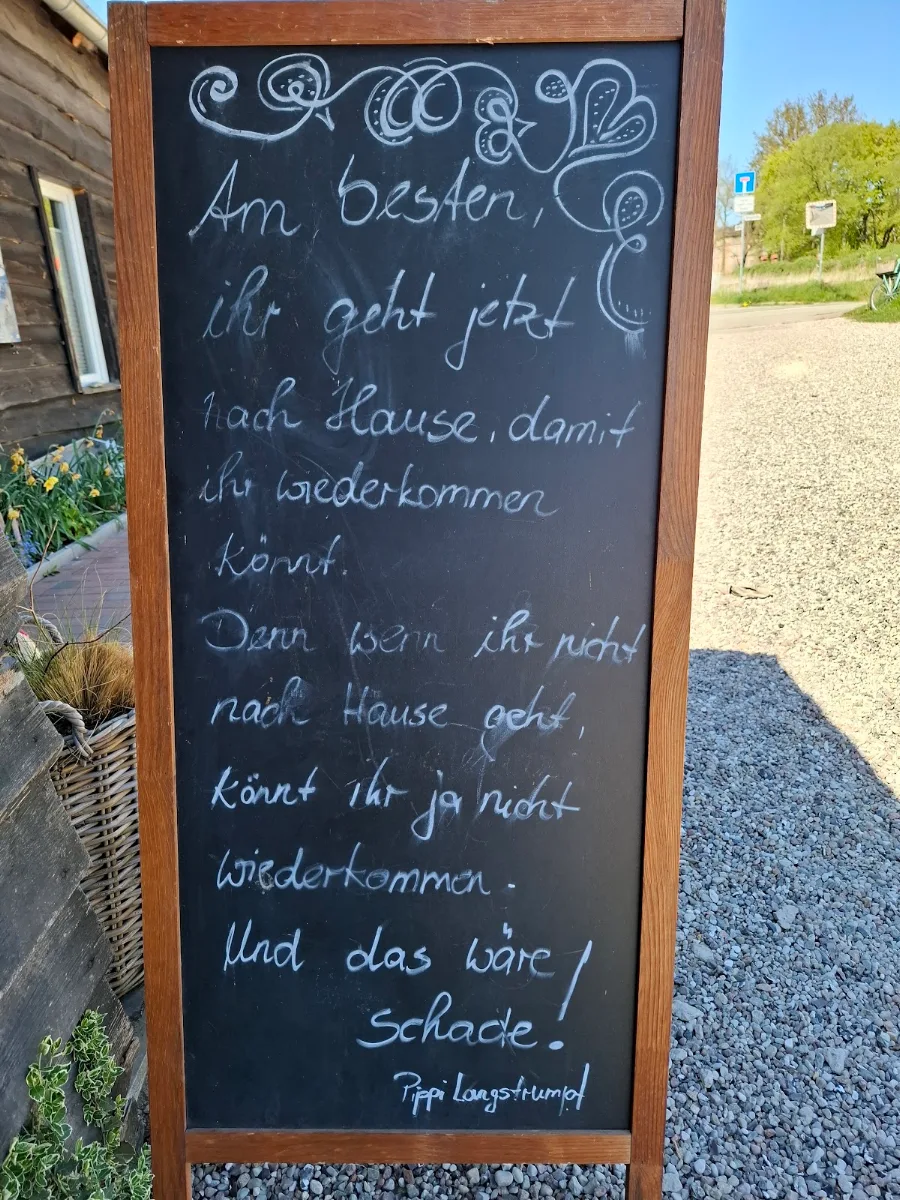 Am besten,
ihr geht jetzt
nach Hause, damit
ihr wiederkommen
könnt.
Denn wenn ihr nicht
nach Hause geht,
könnt ihr ja nicht
wiederkommen.
Und das wäre
Schade!
Pippi Langstrumpf